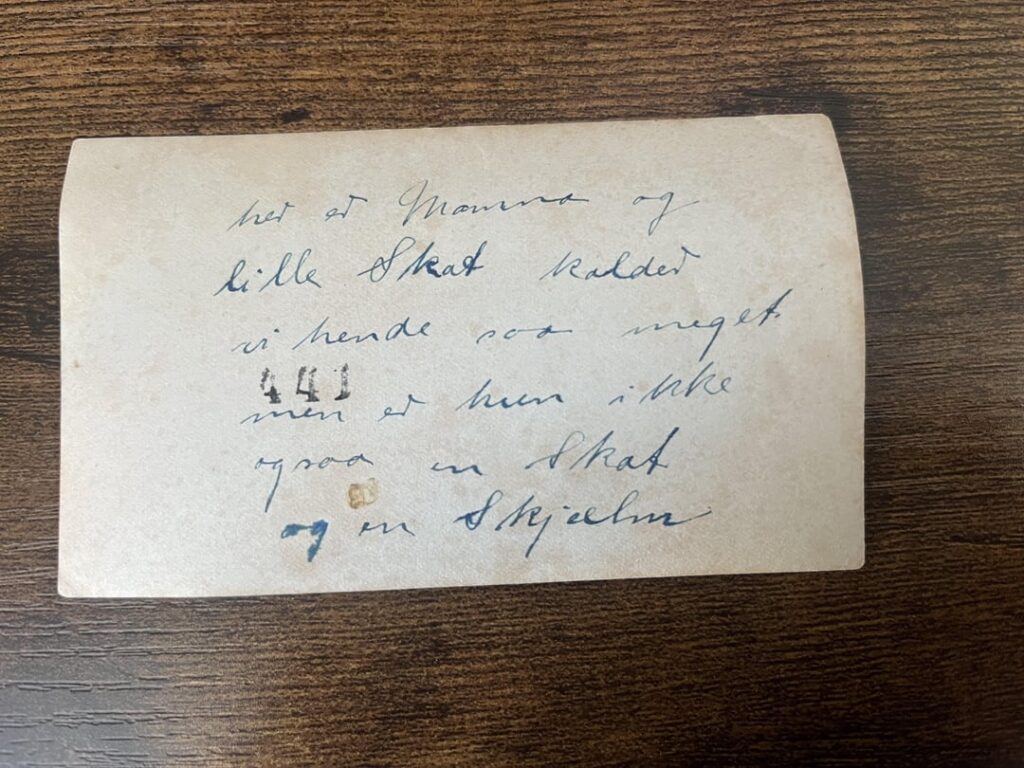 her er Mamma og
lille Skat kalder
vi hende saa meget
441
men er hun ikke
ogsaa en Skat
og en Skjælm